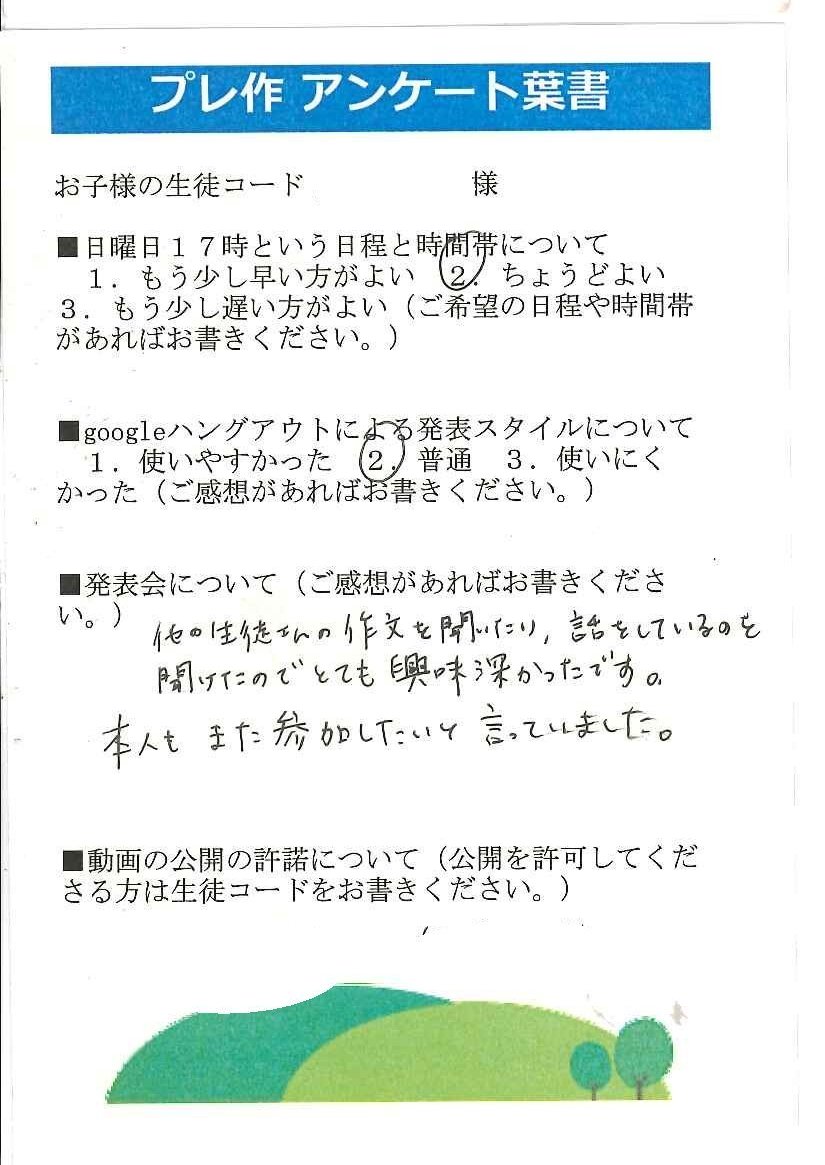 プレ作 アンケート葉書
お子様の生徒コード 様
■日曜日１７時という日程と時間帯について
１．もう少し早い方がよい ２．ちょうどよい
３．もう少し遅い方がよい（ご希望の日程や時間帯
があればお書きください。）
■googleハングアウトによる発表スタイルについて
１．使いやすかった ２．普通 ３．使いにく
かった（ご感想があればお書きください。）
■発表会について（ご感想があればお書きくださ
い。）
他の生徒さんの作文を聞いたり，話をしているのを
聞けたのでとても興味深かったです。
本人も また参加したいと 言っていました。
■動画の公開の許諾について（公開を許可してくだ
さる方は生徒コードをお書きください。）